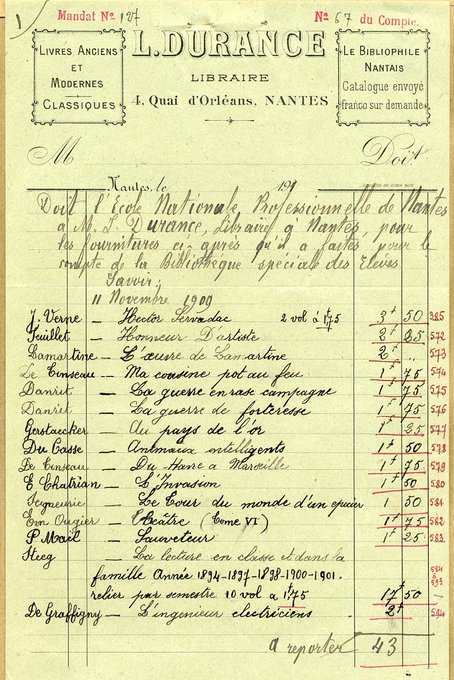 1
Mandat No 127
No 67 du Compte
LIVRES ANCIENS
ET
MODERNES
CLASSIQUES
L. DURANCE
LIBRAIRE
4, Quai d'Orléans, NANTES
LE BIBLIOPHILE
NANTAIS
Catalogue envoyé
franco sur demande
M
Doit
Nantes, le 191
Doit l'Ecole Nationale Professionnelle de Nantes
à M. L. Durance, Libraire à Nantes, pour
les fournitures ci-après qu'il a faites pour le
compte de la Bibliothèque spéciale des Elèves
Savoir:
11 Novembre 1909
J. Verne — Hector Servadac 2 vol à 1f75 3f 50 385
Feuillet — Honneur D'artiste 2f 25 572
Lamartine — L'œuvre de Lamartine 2f " 573
Le Cinseau — Ma cousine pot au feu 1f 75 574
Danrit — La guerre en rase campagne 1f 75 575
Danrit — La guerre de forteresse 1f 75 576
Gerstaecker — Au pays de l'or 1f 25 577
Du Casse — Animaux intelligents 1f 50 578
De Cinseau — Du Havre à Marseille 1f 75 579
E Chatrian — L'Invasion 1f 50 580
Seigneurie — Le Tour du monde d'un epicier 1 50 581
Em Augier — Théatre (Tome VI) 1f 75 582
P Mael — Sauveteur 1f 25 583
Steeg — La lecture en classe et dans la
famille Année 1894-1897-1898-1900-1901- 584 à 593
relier par semestre 10 vol à 1f75 17f 50
De Graffigny — L'ingenieur electriciens 2f 594
A reporter 43